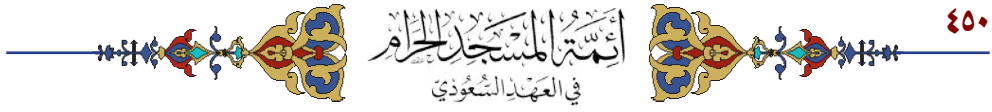 ٤٥٠
أَئِمَّةُ المَسْجِدِ الحَرَامِ
فِي العَهْدِ السُّعُودِيّ